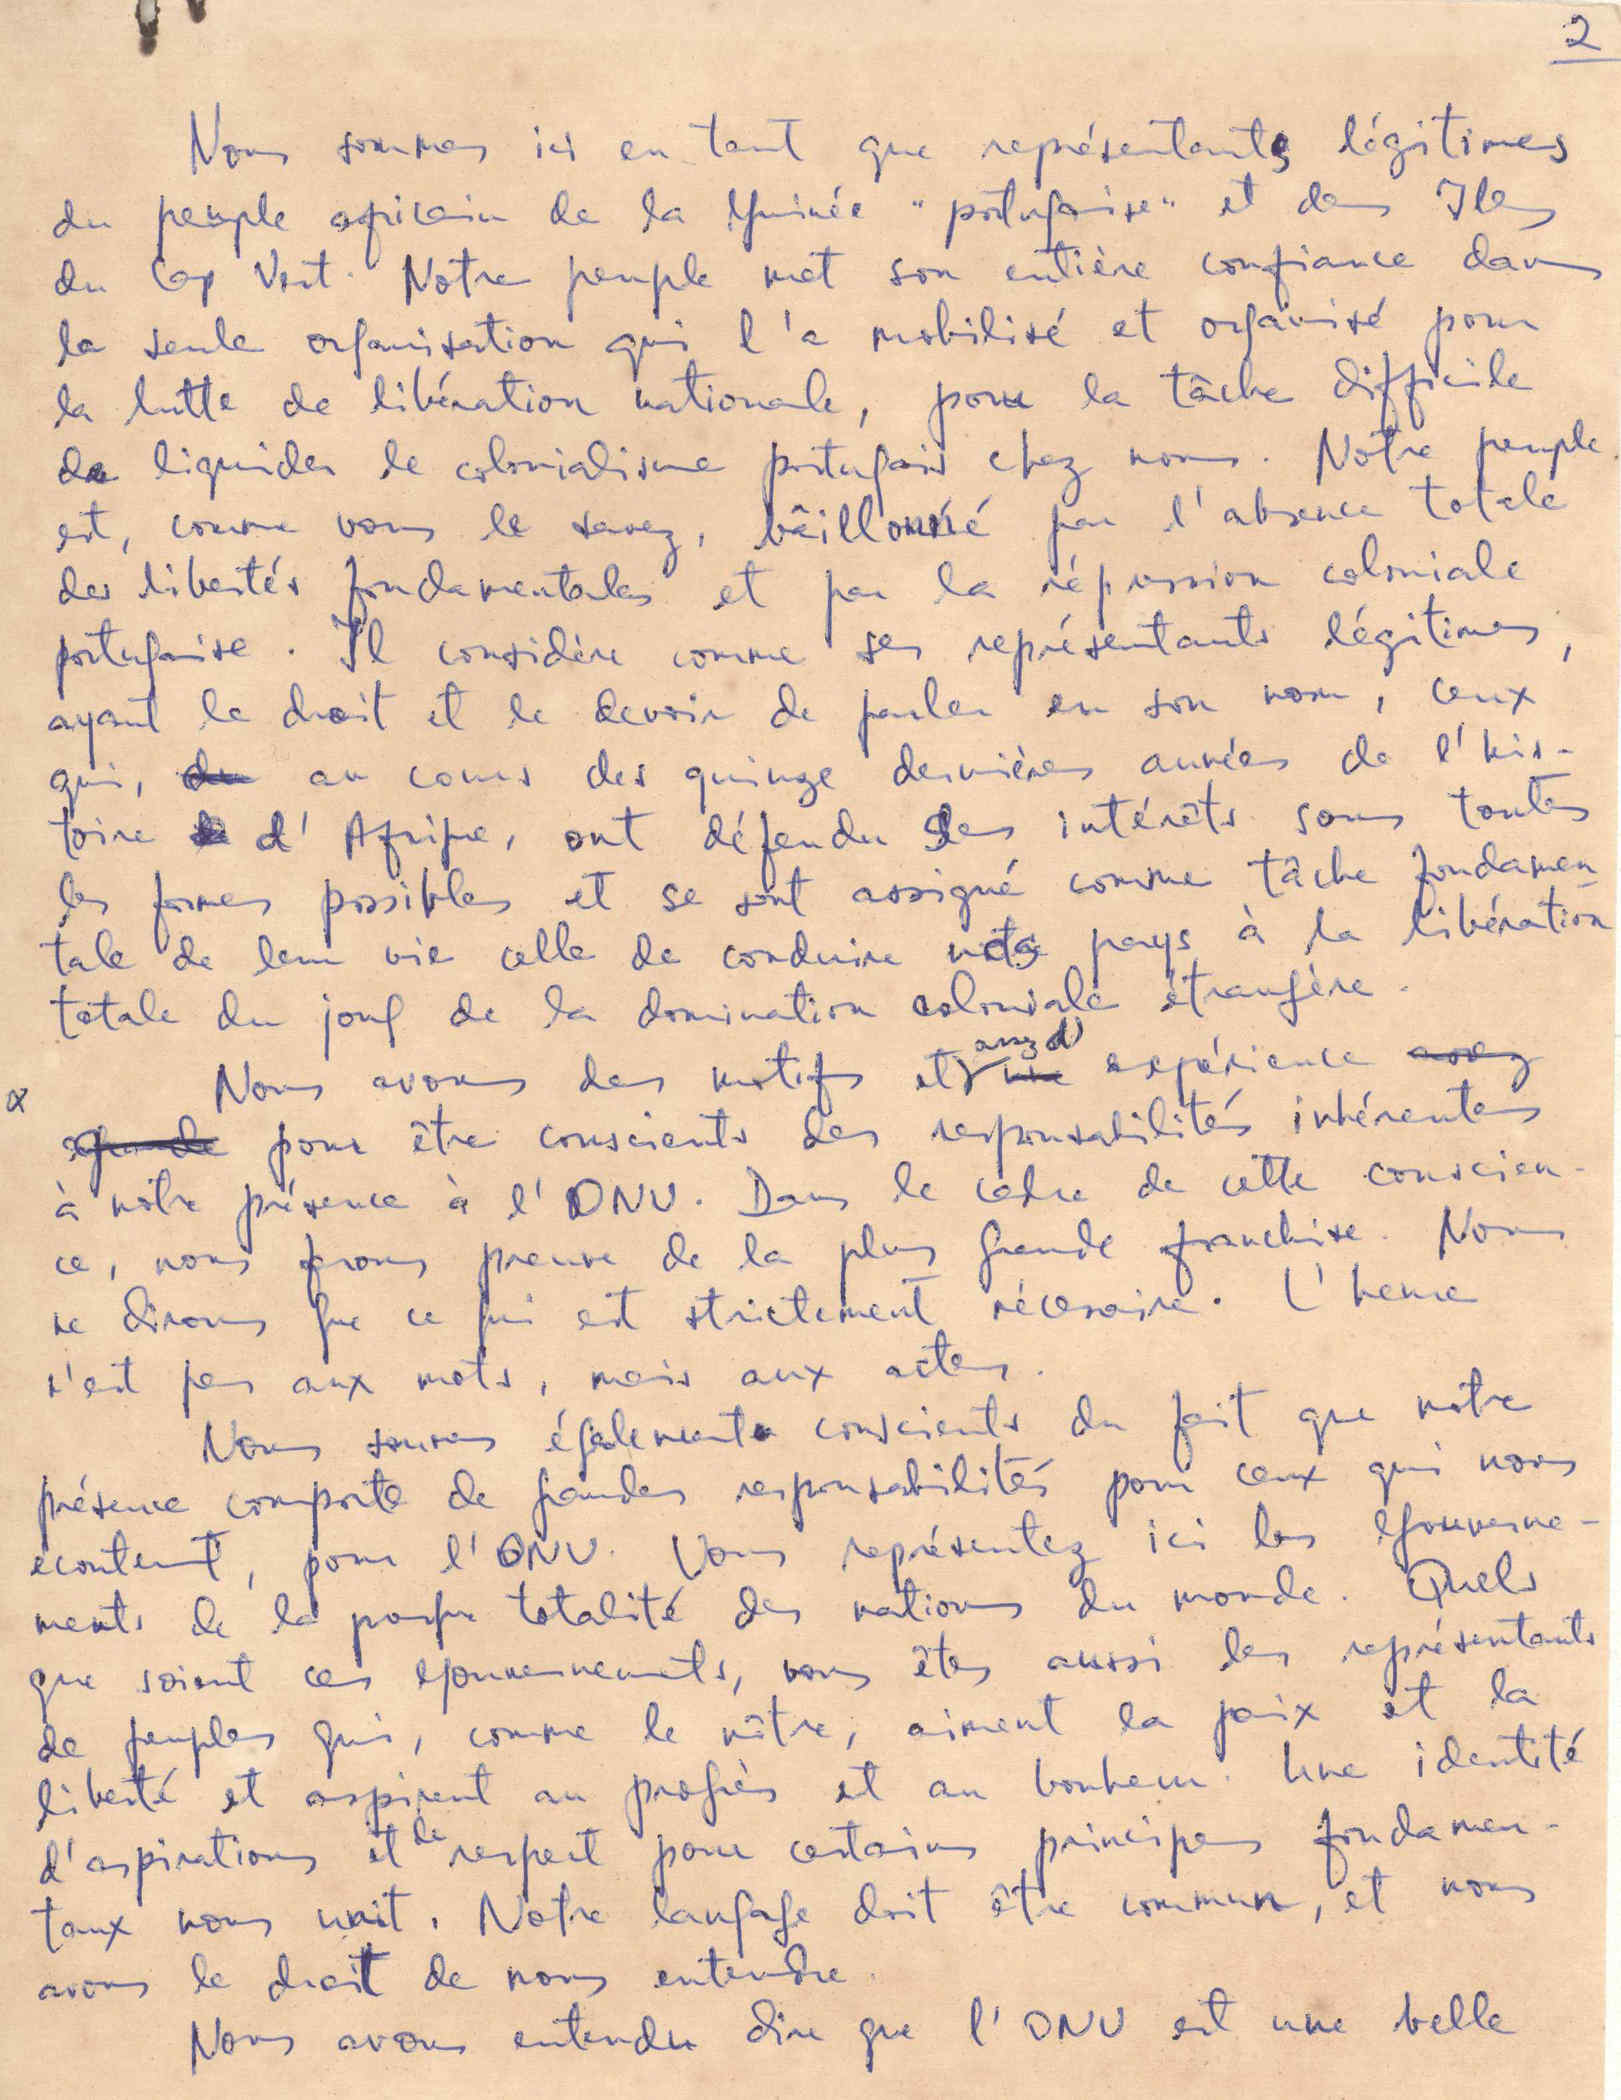 2
Nous sommes ici en tant que représentants légitimes
du peuple africain de la Guinée "portugaise" et des Iles
du Cap Vert. Notre peuple met son entière confiance dans
la seule organisation qui l'a mobilisé et organisé pour
la lutte de libération nationale, pour la tâche difficile
de liquider le colonialisme portugais chez nous. Notre peuple
est, comme vous le savez, bâillonné par l'absence totale
des libertés fondamentales et par la répression coloniale
portugaise. Il considère comme ses représentants légitimes,
ayant le droit et le devoir de parler en son nom, ceux
qui, du au cours des quinze dernières années de l'his-
toire d'Afrique, ont défendu ses intérêts sous toutes
les formes possibles et se sont assigné comme tâche fondamen-
tale de leur vie celle de conduire nos pays à la libération
totale du joug de la domination coloniale étrangère.
assez d'
Nous avons des motifs et une expérience assez
grande pour être conscients des responsabilités inhérentes
à nôtre présence à l'ONU. Dans le cadre de cette conscien-
ce, nous ferons preuve de la plus grande franchise. Nous
ne dirons que ce qui est strictement nécesaire. L'heure
n'est pas aux mots, mais aux actes.
Nous sommes également conscients du fait que nôtre
présence comporte de grandes responsabilités pour ceux qui nous
écoutent, pour l'ONU. Vous représentez ici les gouverne-
ments de la presque totalité des nations du monde. Quels
que soient ces gouvernements, vous êtes aussi les représentants
de peuples qui, comme le nôtre, aiment la paix et la
liberté et aspirent au progrès et au bonheur. Une identité
d'aspirations et de respect pour certains principes fondamen-
taux nous unit. Notre langage doit être commun, et nous
avons le droit de nous entendre.
Nous avons entendu dire que l'ONU est une belle